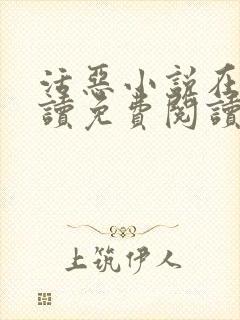 活惡小説在
讀免費閱讀
上筑伊人